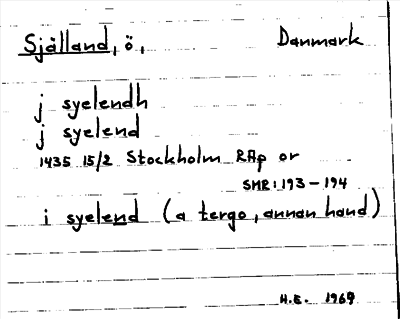 Själland, ö, Danmark
j syelendh
j syelend
1435 15/2 Stockholm RAp or
SMR: 193-194
i syelend (a tergo, annan hand)
H.E. 1969